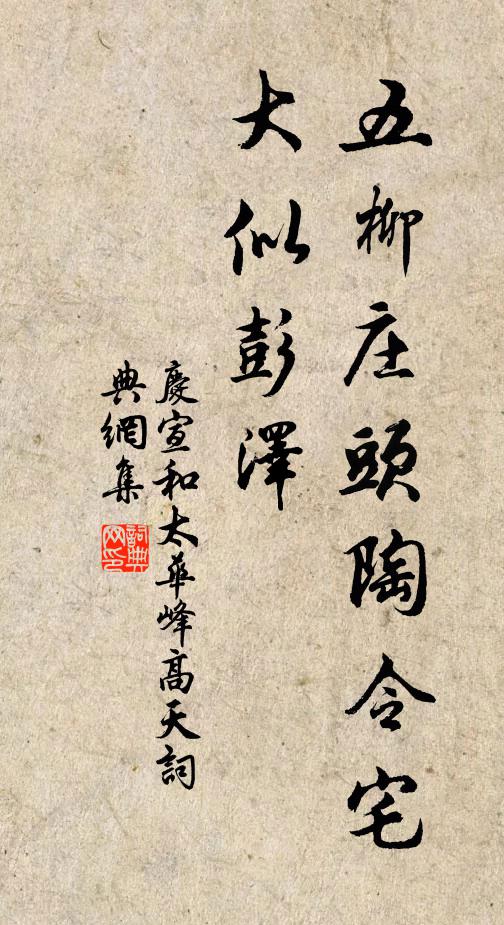 五柳庄頭陶令宅
大似彭澤
慶宣和太華峰高天詞
典網集
詞典
网印